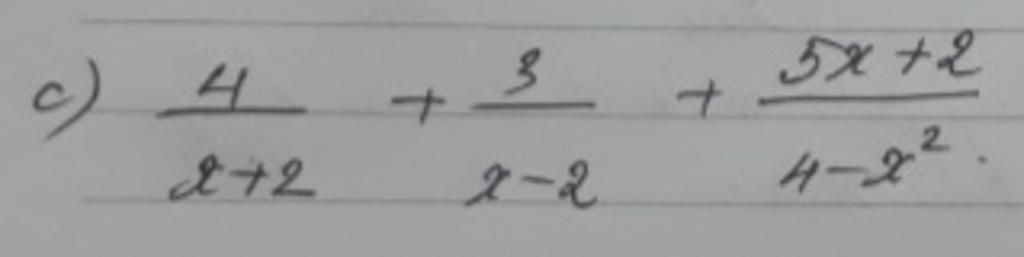 c) 4/(x+2) + 3/(x-2) + (5x+2)/(4-x²).